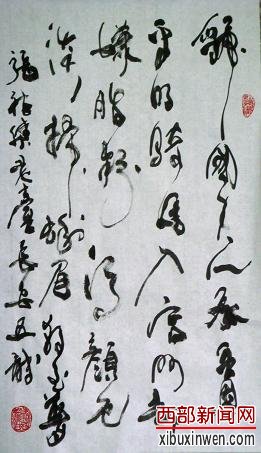 虢國夫人承主恩
平明騎馬入宮門却
嫌脂粉污顏色
淡掃蛾眉朝至尊
張祜集靈臺長安
西部新闻网
xibuxinwen.com